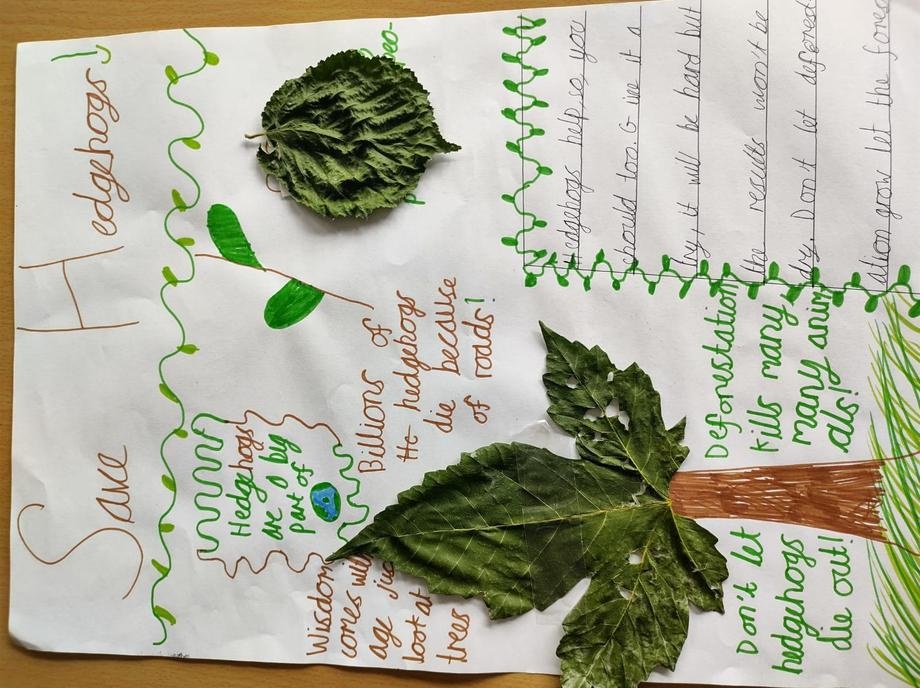 Save Hedgehogs!
Hedgehogs
are A big
part of
Wisdom
comes with
age just
look at
trees
Billions of
the hedgehogs
die because
of roads!
Hedgehogs help, so, you
should too. Give it a
try, it will be hard but
the results won't be
Don't let deforest
ation grow let the
Deforestation
kills many
many anim
als!
Don't let
hedgehogs
die out!